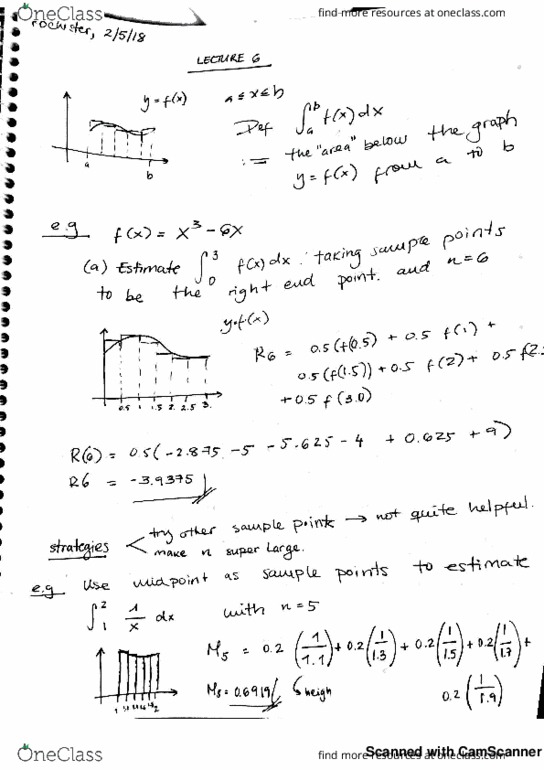 OneClass
find more resources at oneclass.com
rochester, 2/5/18
LECTURE 6
y = f(x) a ≤ x ≤ b
Def ∫_a^b f(x) dx
:= the "area" below the graph
y = f(x) from a to b
a b
e.g f(x) = x³ - 6x
(a) Estimate ∫_0^3 f(x) dx. taking sample points
to be the right end point. and n = 6
y=f(x)
R6 = 0.5(f(0.5) + 0.5 f(1) +
0.5(f(1.5)) + 0.5 f(2) + 0.5 f(2.5
+ 0.5 f(3.0)
0.5 1 1.5 2 2.5 3
R(6) = 0.5(-2.875 -5 -5.625 -4 + 0.625 + 9)
R6 = -3.9375
strategies
try other sample point → not quite helpful.
make n super large.
e.g Use midpoint as sample points to estimate
∫_1^2 1/x dx with n = 5
M5 = 0.2 (1/1.1) + 0.2 (1/1.3) + 0.2 (1/1.5) + 0.2 (1/1.7) +
M5 = 0.6919 heigh 0.2 (1/1.9)
Scanned with CamScanner
OneClass
find more resources at oneclass.com